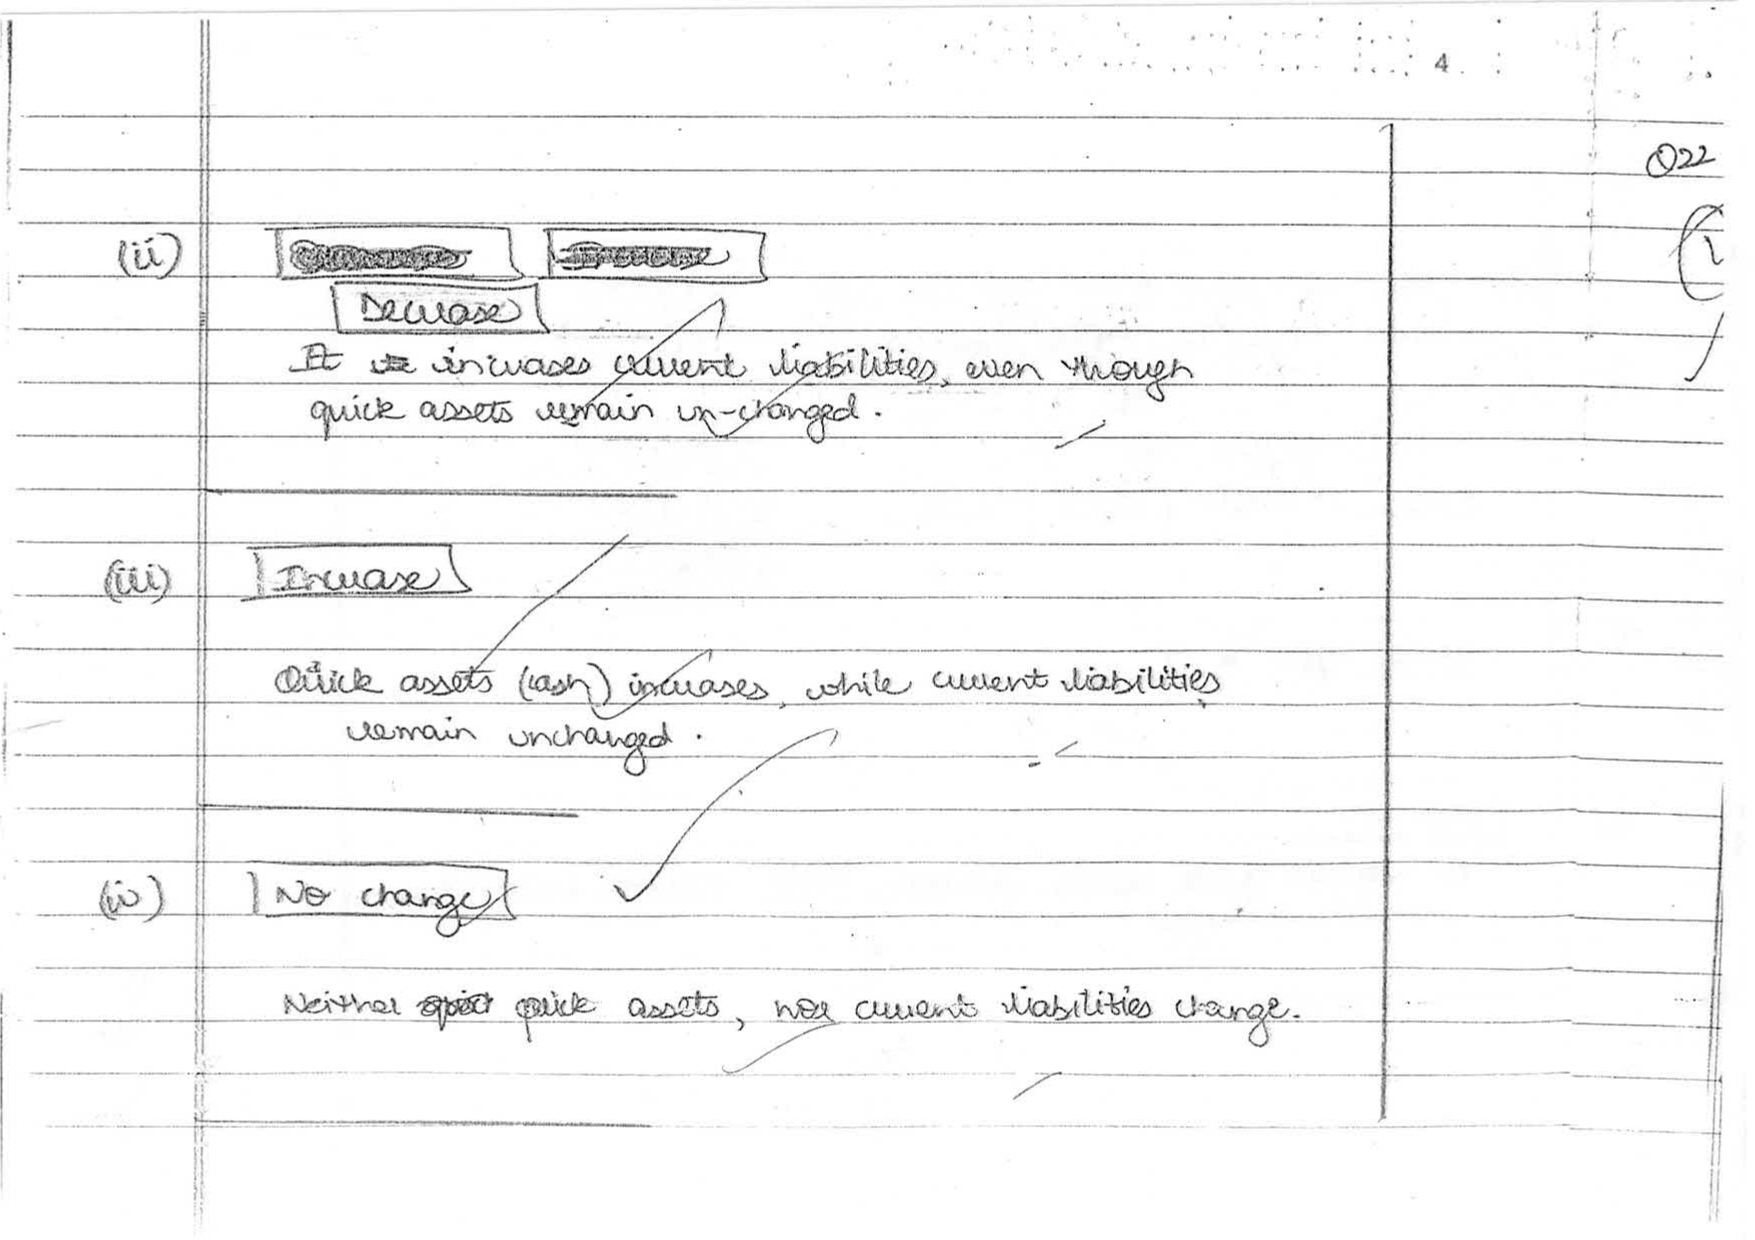 4
Q22
(ii)
Decrease
It increases current liabilities, even though
quick assets remain un-changed.
(iii) Increase
Quick assets (cash) increases, while current liabilities
remain unchanged.
(iv) No change
Neither quick assets, nor current liabilities change.